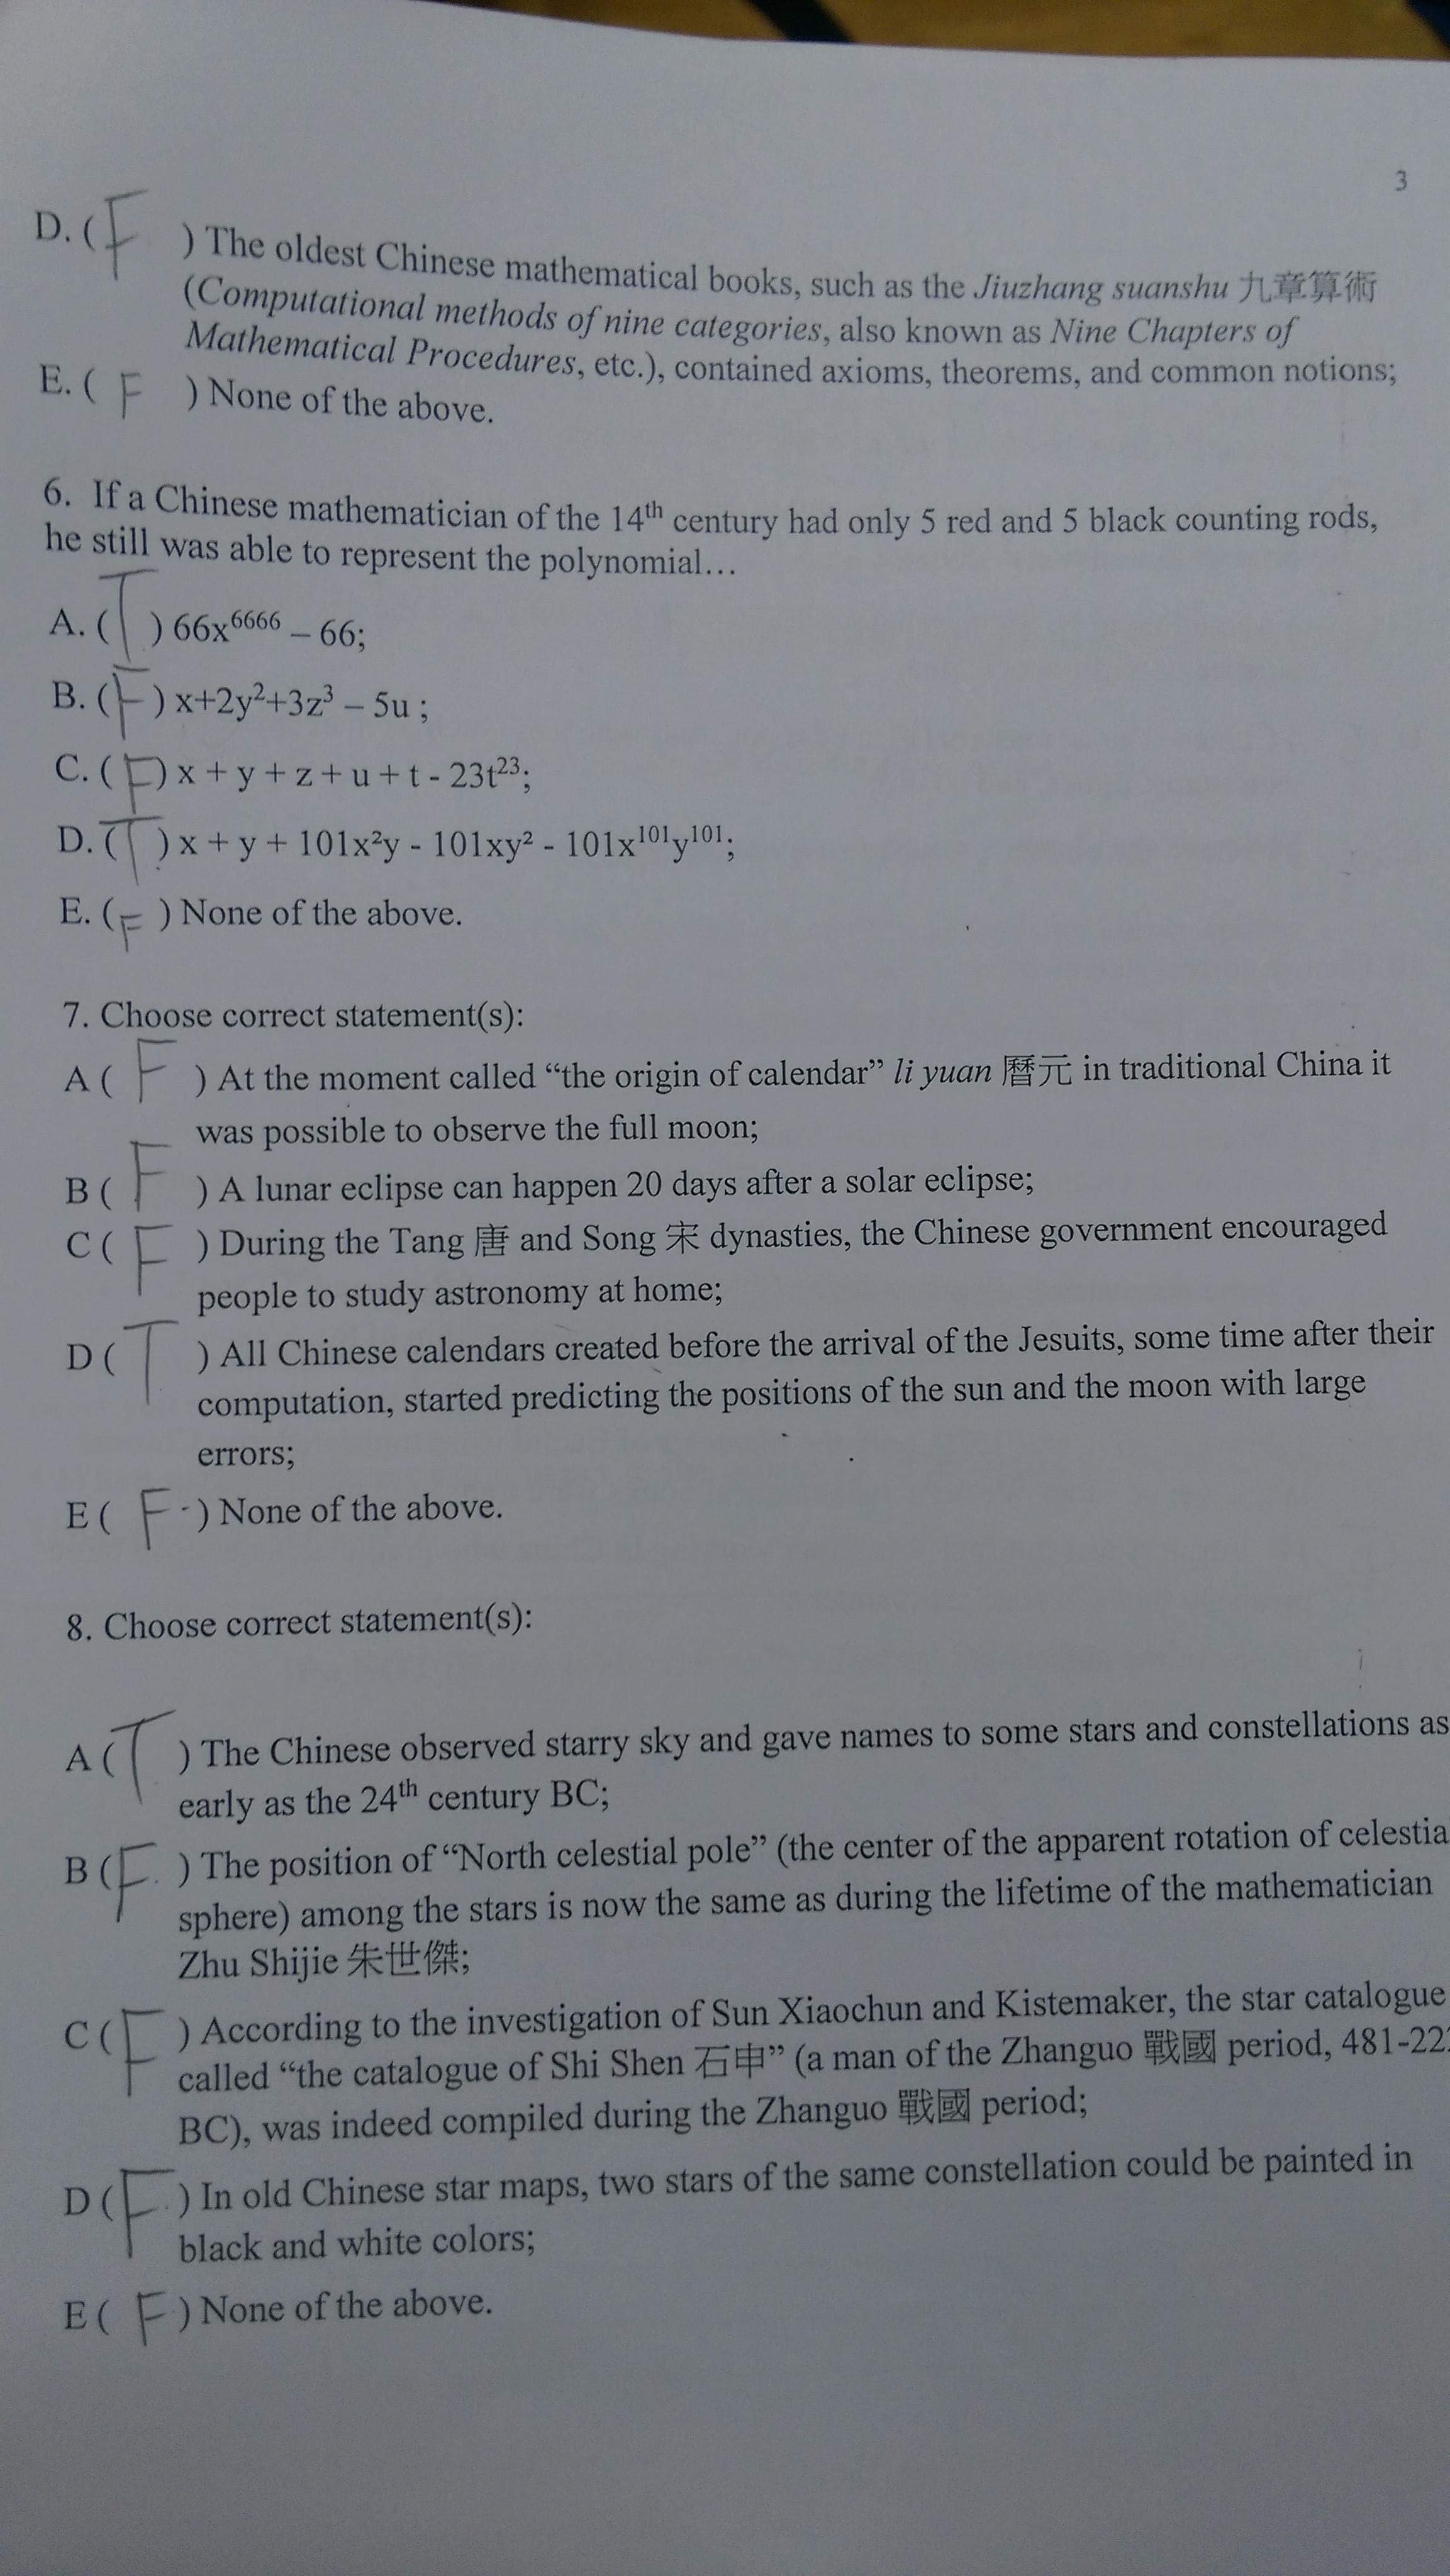 3
D. ( F ) The oldest Chinese mathematical books, such as the Jiuzhang suanshu 九章算術
(Computational methods of nine categories, also known as Nine Chapters of
Mathematical Procedures, etc.), contained axioms, theorems, and common notions;
E. ( F ) None of the above.
6. If a Chinese mathematician of the 14th century had only 5 red and 5 black counting rods,
he still was able to represent the polynomial…
A. ( T ) 66x⁶⁶⁶⁶ – 66;
B. ( F ) x+2y²+3z³ – 5u ;
C. ( F ) x + y + z + u + t - 23t²³;
D. ( T ) x + y + 101x²y - 101xy² - 101x¹⁰¹y¹⁰¹;
E. ( F ) None of the above.
7. Choose correct statement(s):
A ( F ) At the moment called “the origin of calendar” li yuan 曆元 in traditional China it
was possible to observe the full moon;
B ( F ) A lunar eclipse can happen 20 days after a solar eclipse;
C ( F ) During the Tang 唐 and Song 宋 dynasties, the Chinese government encouraged
people to study astronomy at home;
D ( T ) All Chinese calendars created before the arrival of the Jesuits, some time after their
computation, started predicting the positions of the sun and the moon with large
errors;
E ( F ) None of the above.
8. Choose correct statement(s):
A ( T ) The Chinese observed starry sky and gave names to some stars and constellations as
early as the 24th century BC;
B ( F ) The position of “North celestial pole” (the center of the apparent rotation of celestia
sphere) among the stars is now the same as during the lifetime of the mathematician
Zhu Shijie 朱世傑;
C ( F ) According to the investigation of Sun Xiaochun and Kistemaker, the star catalogue
called “the catalogue of Shi Shen 石申” (a man of the Zhanguo 戰國 period, 481-22
BC), was indeed compiled during the Zhanguo 戰國 period;
D ( F ) In old Chinese star maps, two stars of the same constellation could be painted in
black and white colors;
E ( F ) None of the above.